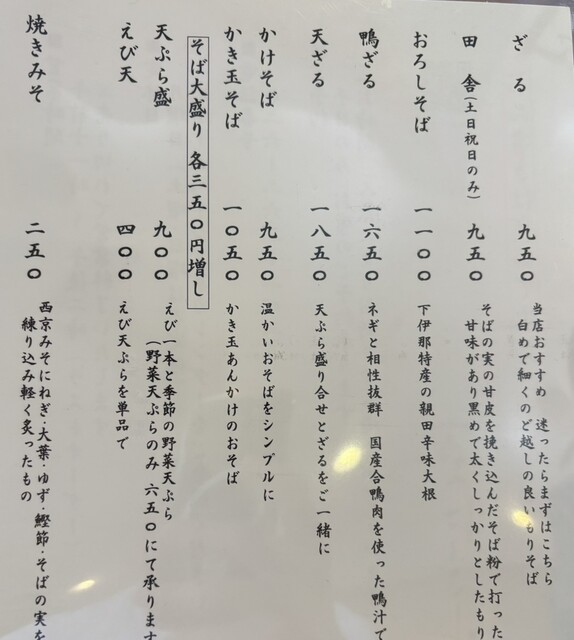 ざる 九五〇
当店おすすめ 迷ったらまずはこちら
白めで細くのど越しの良いもりそば
田舎(土日祝日のみ) 九五〇
そばの実の甘皮を挽き込んだそば粉で打った
甘味があり黒めで太くしっかりとしたもり
おろしそば 一一〇〇
下伊那特産の親田辛味大根
鴨ざる 一六五〇
ネギと相性抜群 国産合鴨肉を使った鴨汁で
天ざる 一八五〇
天ぷら盛り合せとざるをご一緒に
かけそば 九五〇
温かいおそばをシンプルに
かき玉そば 一〇五〇
かき玉あんかけのおそば
そば大盛り 各三五〇円増し
天ぷら盛 九〇〇
えび一本と季節の野菜天ぷら
(野菜天ぷらのみ 六五〇にて承ります
えび天 四〇〇
えび天ぷらを単品で
焼きみそ 二五〇
西京みそにねぎ・大葉・ゆず・鰹節・そばの実を
練り込み軽く炙ったもの